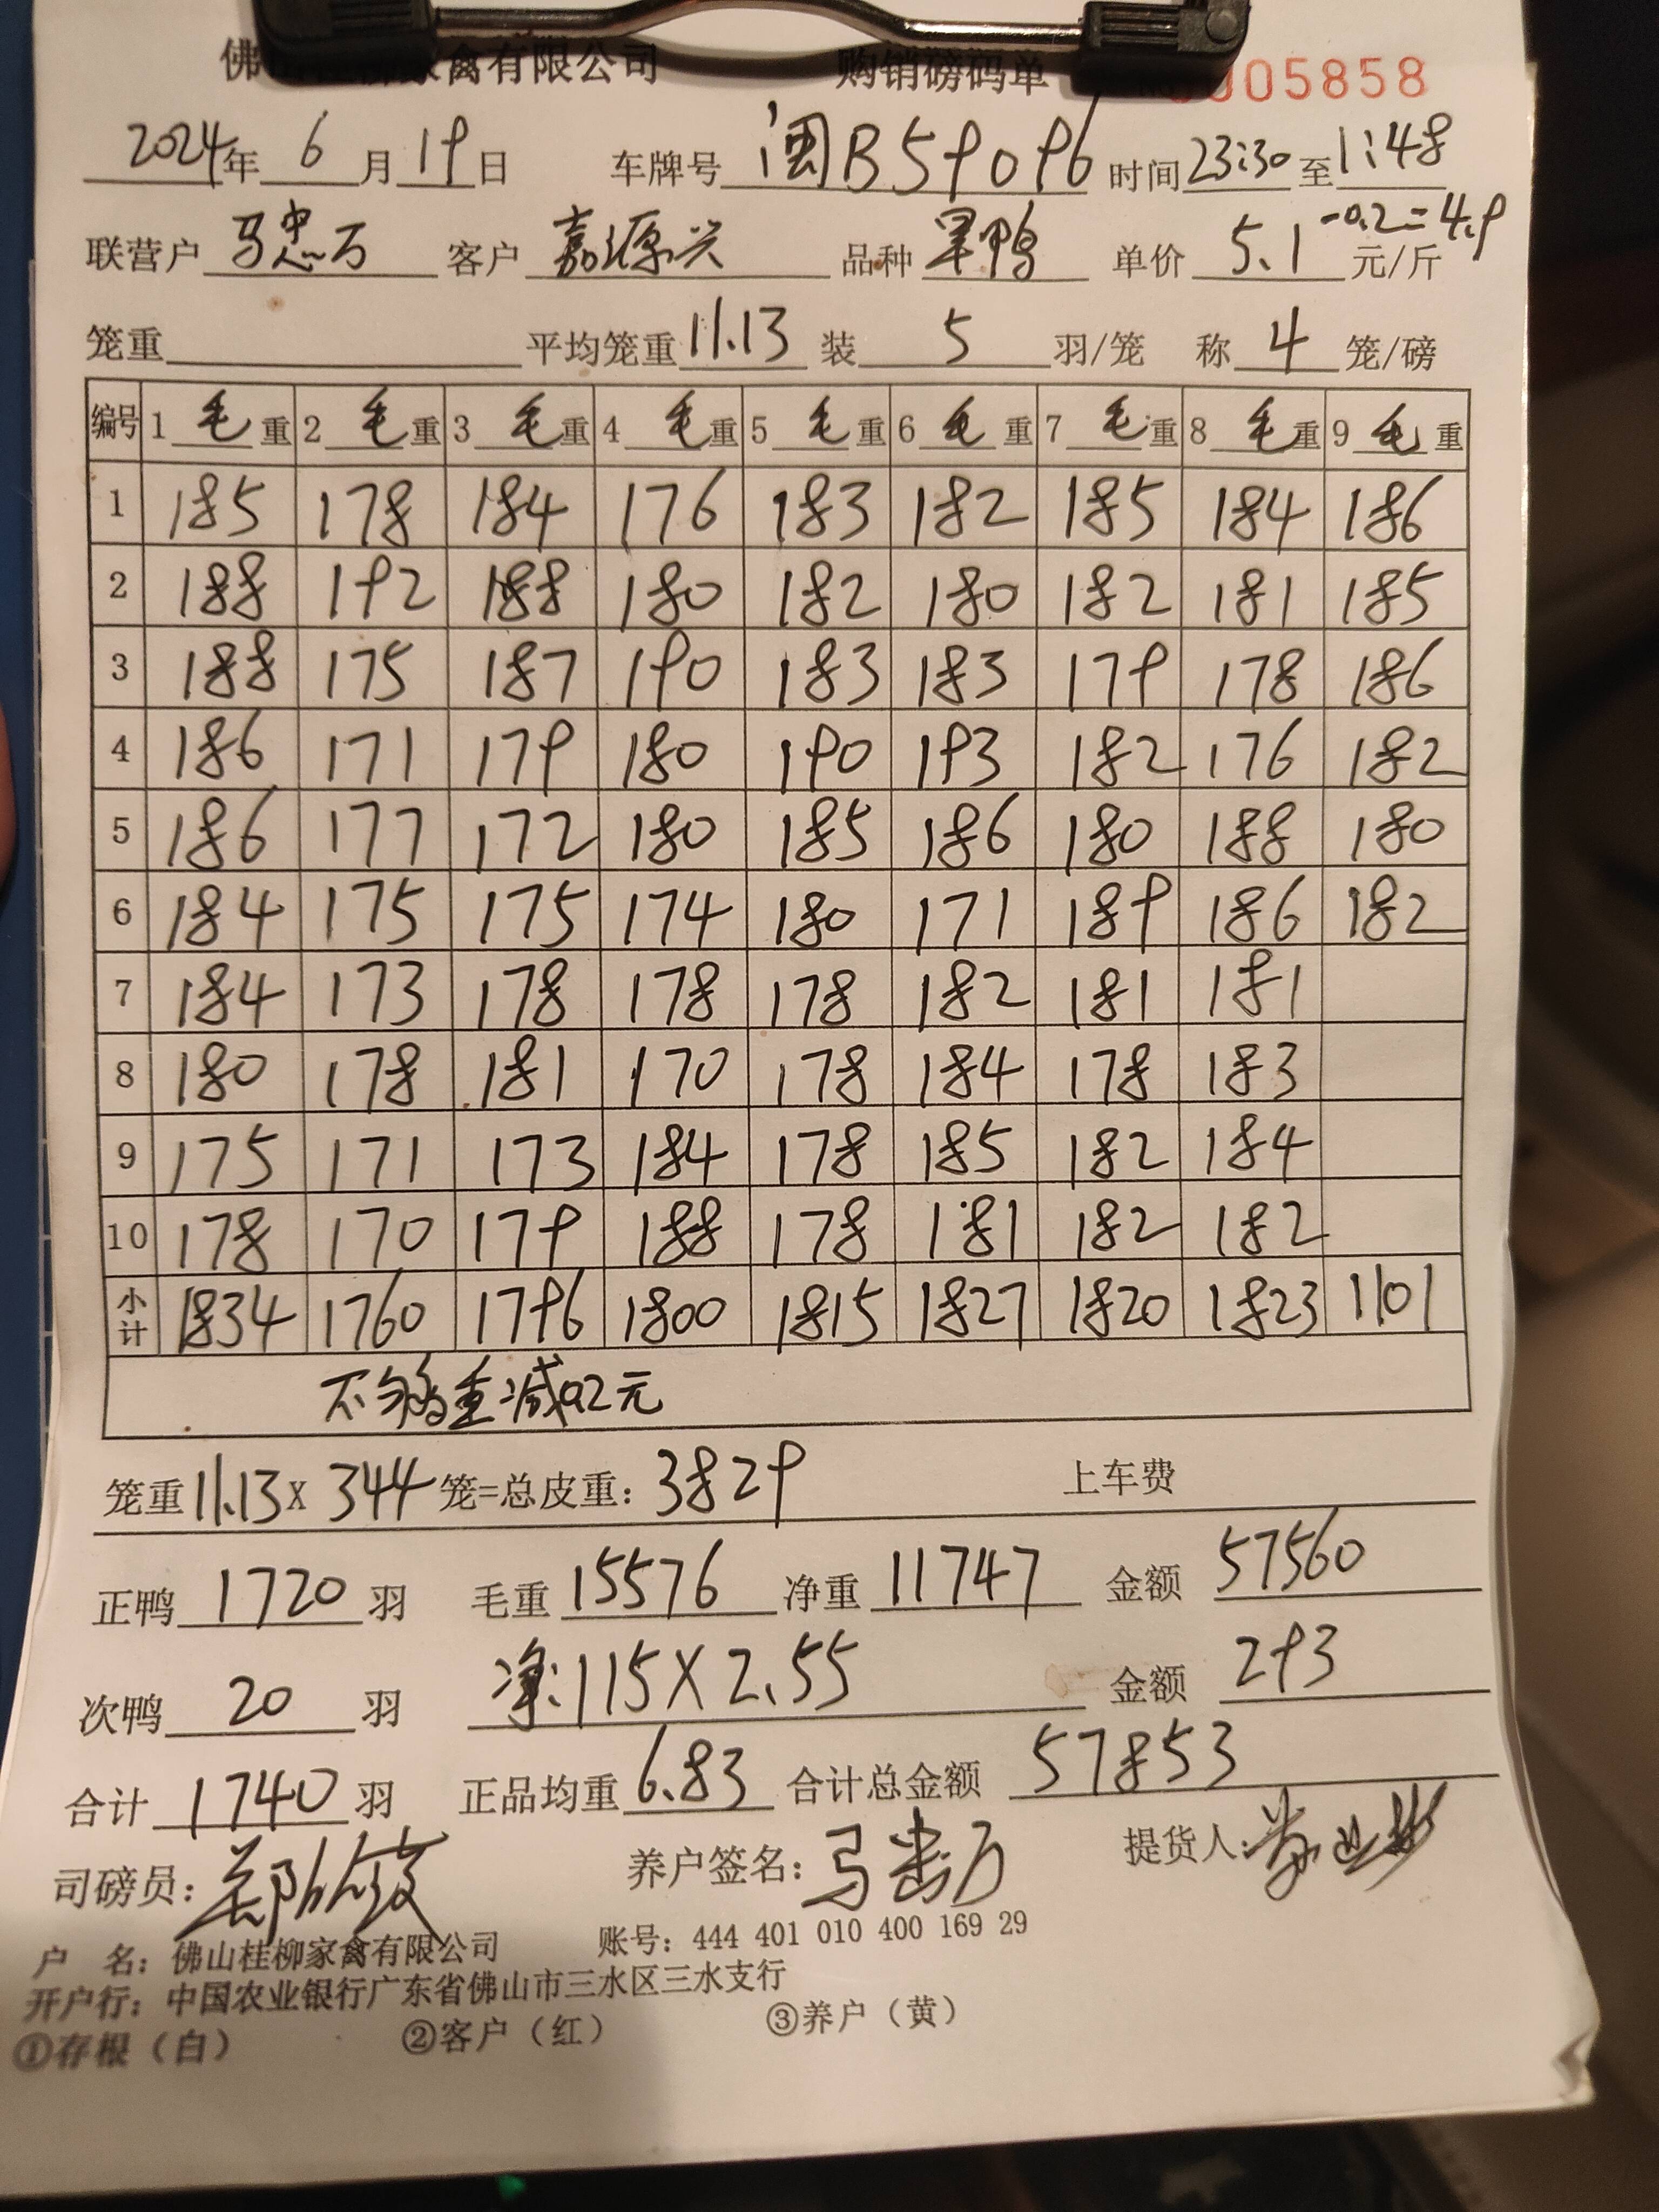 佛山桂柳家禽有限公司 购销磅码单 005858
2024年 6 月 19 日 车牌号 闽B59096 时间 23:30 至 1:48
联营户 马忠万 客户 嘉源兴 品种 旱鸭 单价 5.1 -0.2=4.9 元/斤
笼重 平均笼重 11.13 装 5 羽/笼 称 4 笼/磅
编号 1 毛 重 2 毛 重 3 毛 重 4 毛 重 5 毛 重 6 毛 重 7 毛 重 8 毛 重 9 毛 重
1 185 178 184 176 183 182 185 184 186
2 188 192 188 180 182 180 182 181 185
3 188 175 187 190 183 183 179 178 186
4 186 171 179 180 190 193 182 176 182
5 186 177 172 180 185 186 180 188 180
6 184 175 175 174 180 171 189 186 182
7 184 173 178 178 178 182 181 181
8 180 178 181 170 178 184 178 183
9 175 171 173 184 178 185 182 184
10 178 170 179 188 178 181 182 182
小计 1834 1760 1796 1800 1815 1827 1820 1823 1101
不够重减0.2元
笼重 11.13 x 344 笼=总皮重: 3829 上车费
正鸭 1720 羽 毛重 15576 净重 11747 金额 57560
次鸭 20 羽 净:115X2.55 金额 293
合计 1740 羽 正品均重 6.83 合计总金额 57853
司磅员: 养户签名: 马忠万 提货人:
户 名: 佛山桂柳家禽有限公司 账号: 444 401 010 400 169 29
开户行: 中国农业银行广东省佛山市三水区三水支行
①存根（白） ②客户（红） ③养户（黄）